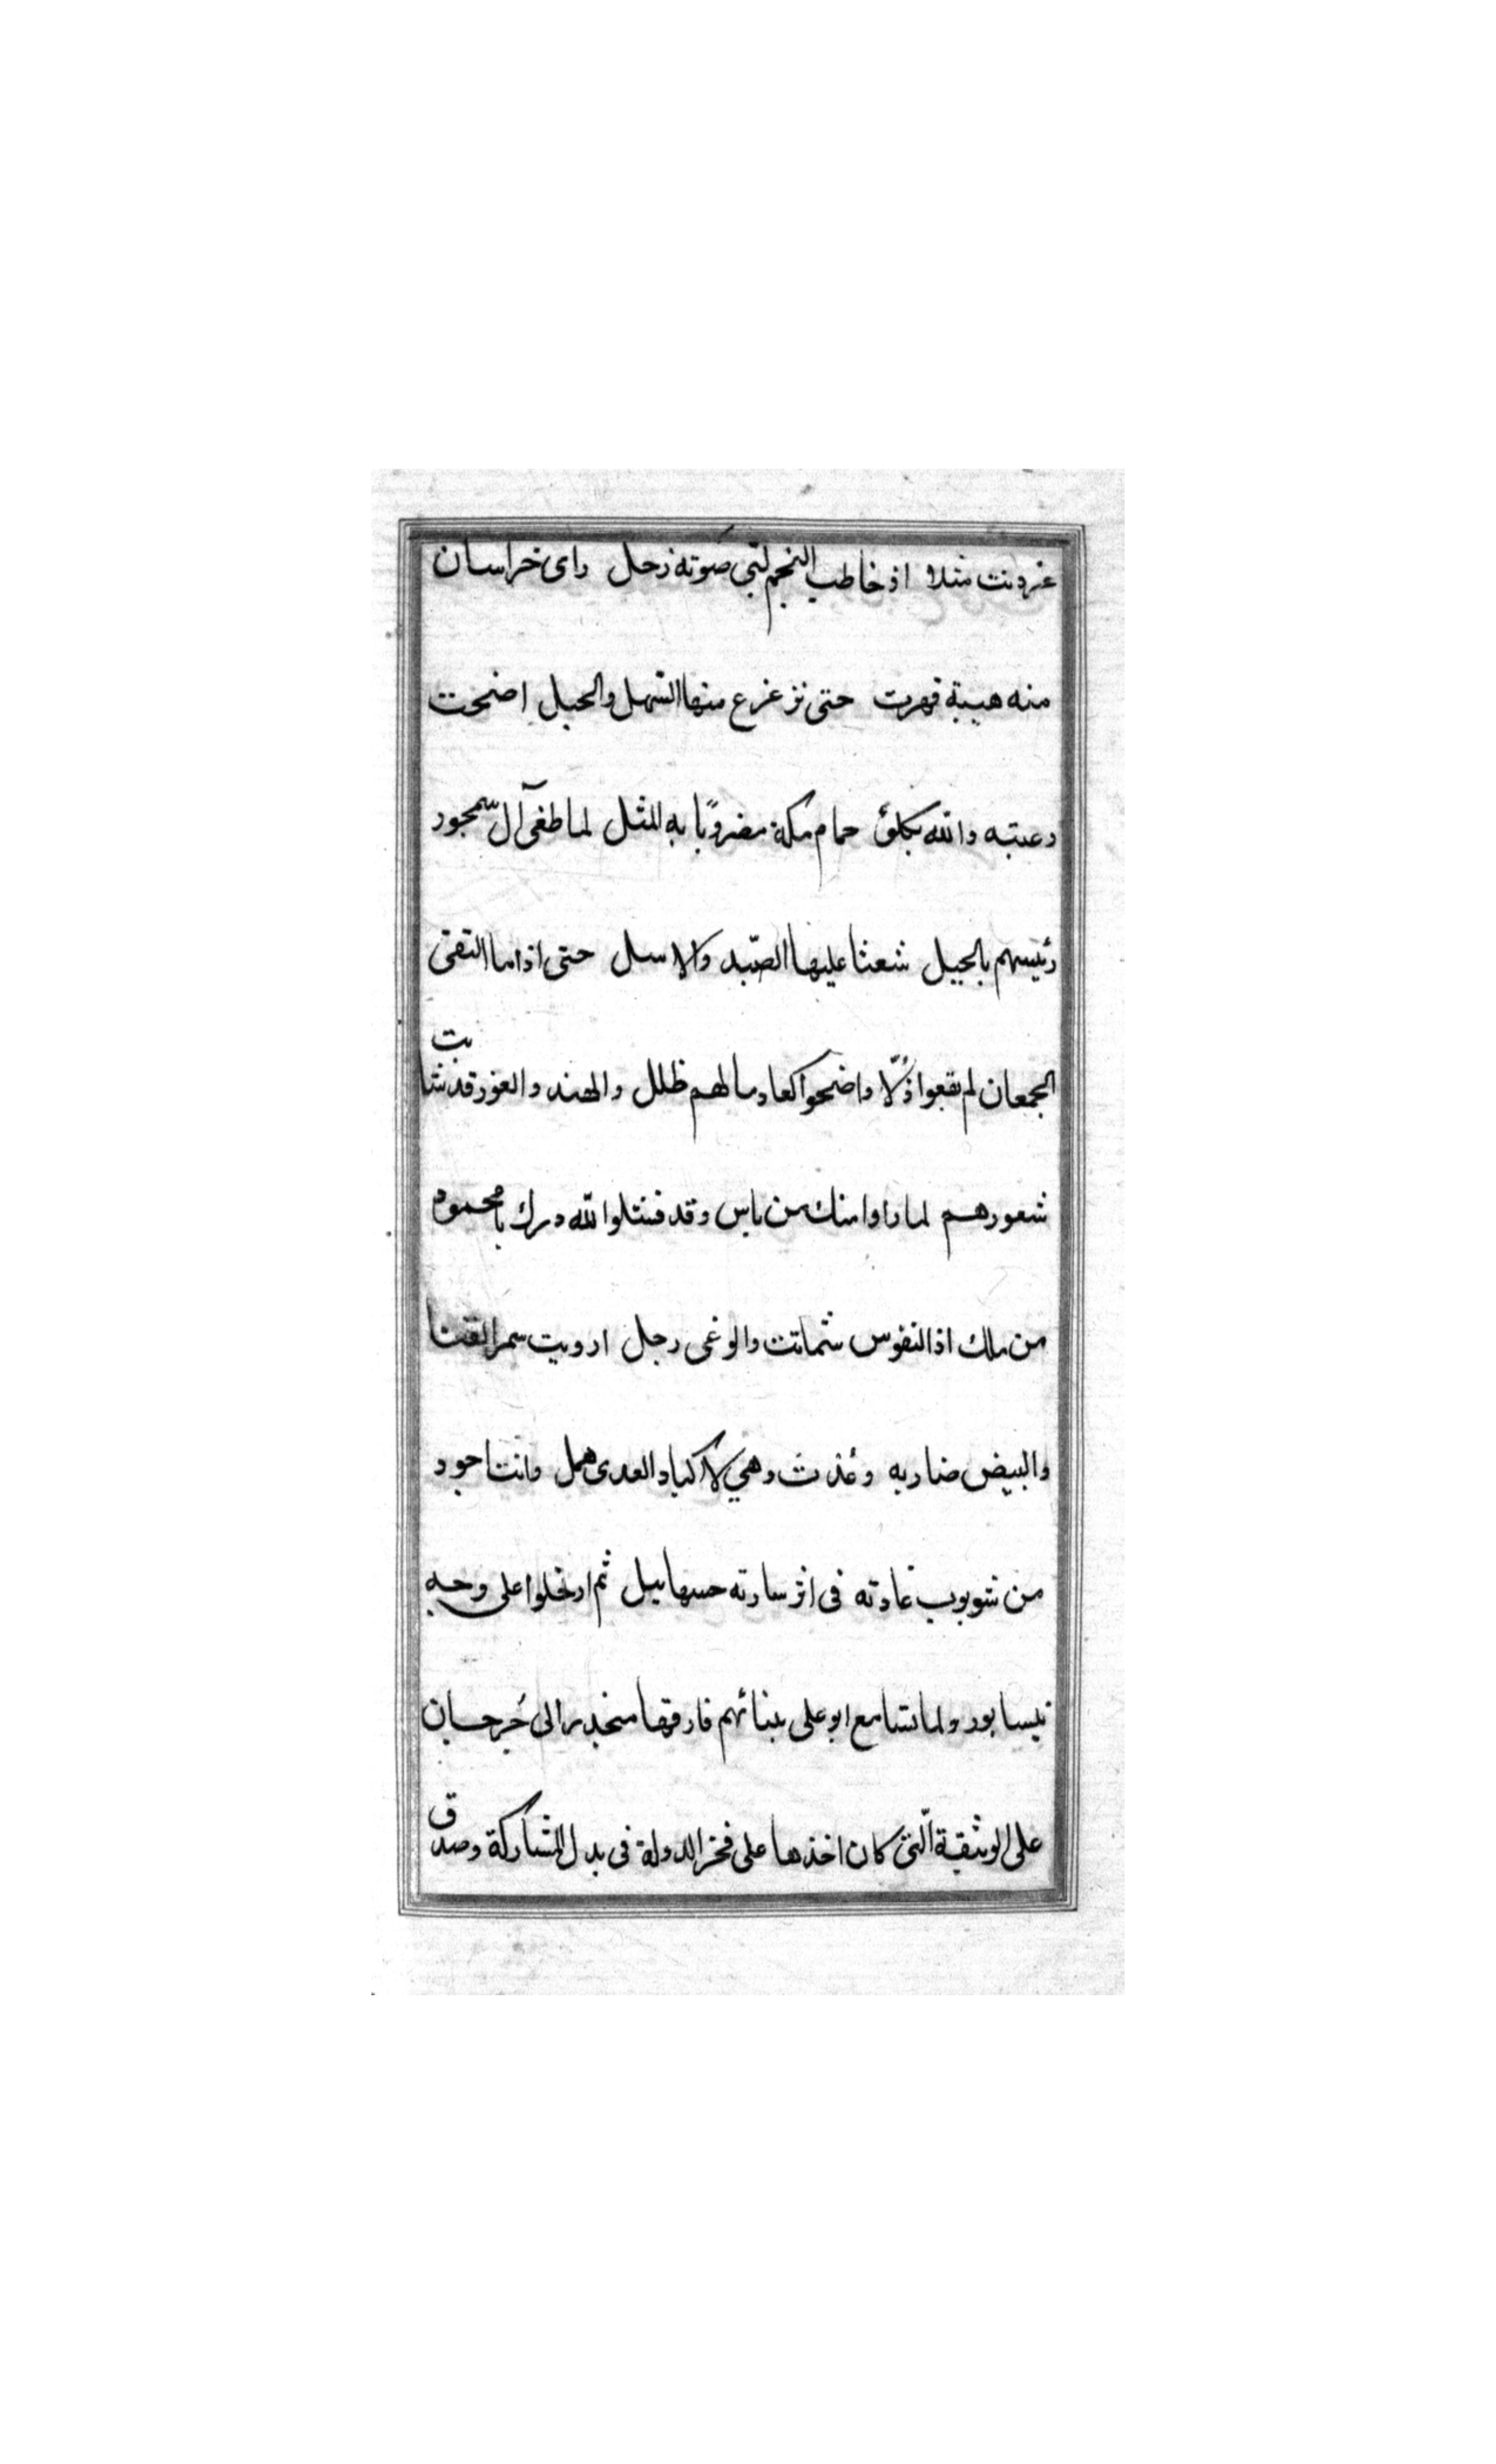 غردنت مثلا اذ خاطب النجم لبّى صوته زحل راى خراسان
منه هيبة قهرت حتى تزعزع منها السّهل والجبل اضحت
رعيته والله يكلؤ حمام مكة مضروبًا به المثل لما طغى آل سيمجور
رئيسهم بالجبل شعثا عليها الصّيد والاسل حتى اذا ما التقى
الجمعان لم يقعوا ذُلّا واضحوا كعاد ما لهم ظلل والهند والغور قد شابت
شعورهم لما راوا منك من باس وقد فشلوا لله درك يا محمود
من ملك اذ النفوس شماتت والوغى رجل ارويت سمر القنا
والبيض ضاربه وغذت وهي لأكباد العدى همل وانت اجود
من شوبوب غادته فى اثر سارته حسها سبل ثم ارتحلوا على وجه
نيسابور ولما تسامع ابو على بنبائهم فارقها منحدرا الى جُرجان
على الوثيقة الّتى كان اخذها على فخر الدولة فى بدل المشاركة وصدق